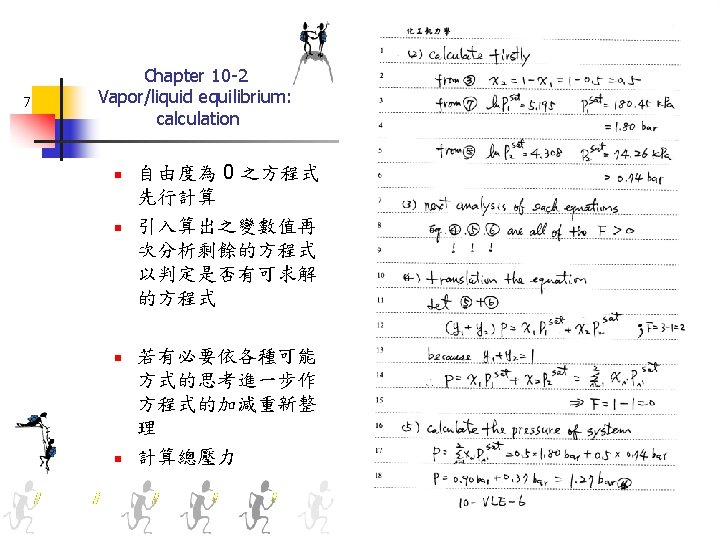 7
Chapter 10-2
Vapor/liquid equilibrium:
calculation
自由度為 0 之方程式
先行計算
引入算出之變數值再
次分析剩餘的方程式
以判定是否有可求解
的方程式
若有必要依各種可能
方式的思考進一步作
方程式的加減重新整
理
計算總壓力
化工熱力學
1 (2) calculate firstly
2 from ③ x₂ = 1 - x₁ = 1 - 0.5 = 0.5
3 from ⑦ ln P₁sat = 5.195 P₁sat = 180.45 kPa
4 = 1.80 bar
5 from ⑧ ln P₂sat = 4.308 P₂sat = 74.26 kPa
6 = 0.74 bar
7 (3) next analysis of each equations
8 Eq. ④.⑤.⑥ are all of the F > 0
9 ! ! !
10 (4) translation the equation
11 let ⑤ + ⑥
12 (y₁+y₂) P = x₁P₁sat + x₂P₂sat ; F=3-1=2
13 because y₁+y₂=1
14 P = x₁P₁sat + x₂P₂sat = Σ xᵢPᵢsat
15 ⇒ F = 1-1=0
16 (5) calculate the pressure of system
17 P = Σ xᵢPᵢsat = 0.5 × 1.80 bar + 0.5 × 0.74 bar
18 P = 0.90 bar + 0.37 bar = 1.27 bar
10-VLE-6